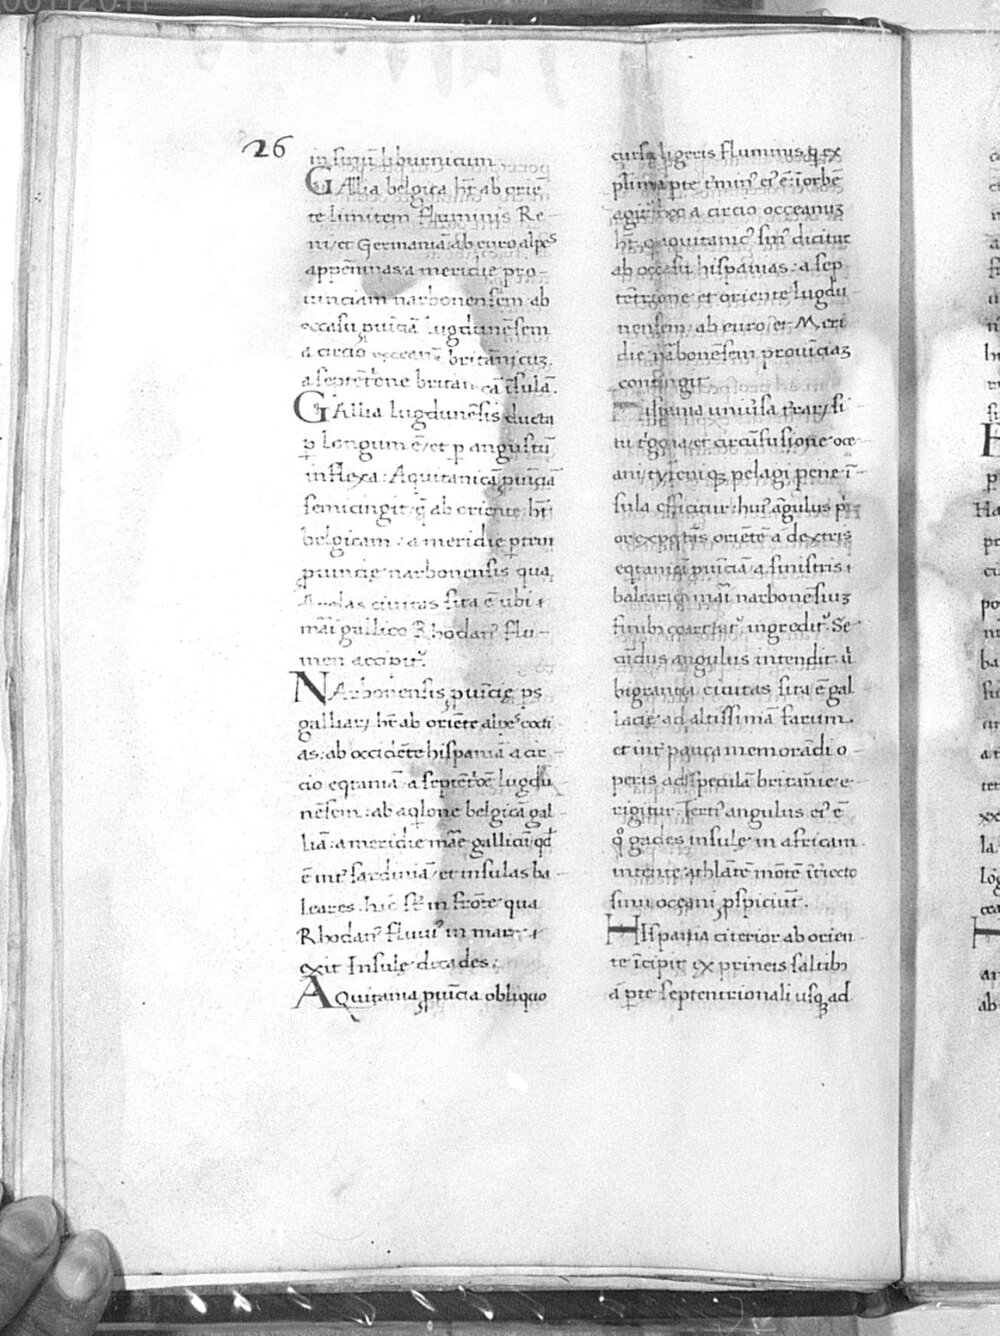 26
in sinū liburnicum.
GAllia belgica hr̄ ab oriē
te limitem fluminis Re-
ni/et Germaniā: ab euro alpes
appēninas: a meridie pro-
uinciam narbonensem ab
occasu puīciā lugdunēsem
a circio occeanū britānicuz.
a septētrōne britanicā īsulā.
GAllia lugdunēsis ducta
p longum ē/et p angustū
inflexa: Aquitanicā puīciā
semicingit: q̄ ab oriente hr̄
belgicam: a meridie ptem
puincię narbonensis qua
Arelas ciuitas sita ē ubi
māi gallico Rhodanꝰ flu-
men accipitꝰ.
NArbonensis puīcię ps
galliaꝝ hr̄ ab oriēte alpes cocti
as: ab occidēte hispaniā a cir-
cio eqtaniā: a septētrōe lugdū
nēsem: ab aqlone belgicā gal-
liā: a meridie māe gallicū qd
ē int sardiniā/et insulas ba
leares. hn̄s in frōte qua
Rhodanꝰ fluuiꝰ in mare
exit Insulę dictades:
AQuitania puīcia obliquo
cursu ligeris fluminis q ex
plima pte tminꝰ eiꝰ ē: ī orbē
agitꝰ hec a circio occeanuz
hr̄: q aquitanicꝰ sinꝰ dicitur
ab occasu hispanias: a sep
tētrione et oriente lugdu
nensem/ab euro/et Meri
die nabonēsem prouīciaz
contingit.
Hispania uniūsa traꝝ si
tu tgona/et circūfusione oce
ani/tyrenīqꝫ pelagi pene ī-
sula efficitur: huiꝰ āgulus pi
or expetās oriētē a dextris
eqtanicā puīciā/a sinistris
balearico māi narbonēsiuz
finibꝰ coartatꝰ ingreditꝰ. Se
cūdus angulus intendit: ū
brigrantia ciuitas sita ē gal
lacię ad altissimā farum.
et int pauca memorādi o-
peris ad speculā britanīe e-
rigitur. Tertiꝰ angulus eiꝰ ē
q gades insulę in africam
intente athlātē mōtē īt́iecto
sinu oceani pspiciūt.
HIspania citerior ab orien
te īcipit ex prineis saltibꝰ
a pte septentrionali usqꝫ ad